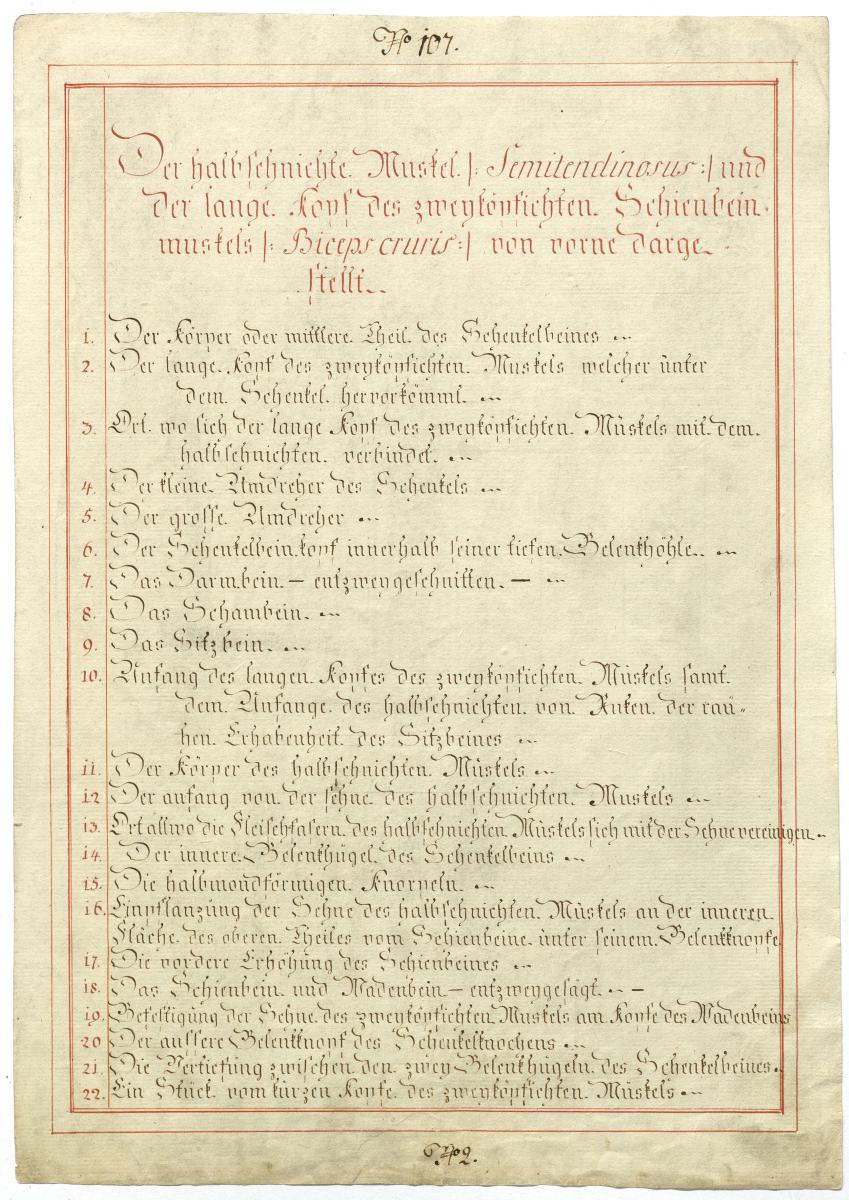 No 107.
Der halbsehnichte Muskel |: Semitendinosus :| und
der lange Kopf des zweyköpfichten Schienbein-
muskels |: Biceps cruris :| von vorne darge-
stellt.
1. Der Körper oder mittlere Theil des Schenkelbeines
2. Der lange Kopf des zweyköpfichten Muskels welcher unter
dem Schenkel hervorkömmt.
3. Ort wo sich der lange Kopf des zweyköpfichten Müskels mit dem
halbsehnichten verbindet.
4. Der kleine Umdreher des Schenkels
5. Der grosse Umdreher
6. Der Schenkelbeinkopf innerhalb seiner tiefen Gelenkhöhle.
7. Das Darmbein — entzweygeschnitten. —
8. Das Schambein.
9. Das Sitzbein.
10. Anfang des langen Kopfes des zweyköpfichten Müskels samt
dem Anfange des halbsehnichten von der raü-
hen Erhabenheit des Sitzbeines
11. Der Körper des halbsehnichten Müskels
12 Der anfang von der sehne des halbsehnichten Muskels
13. Ort allwo die Fleischfasern des halbsehnichten Müskels sich mit der Sehne vereinigen
14. Der innere Gelenkhügel des Schenkelbeins
15. Die halbmondförmigen Knorpeln.
16. Einpflanzüng der Sehne des halbsehnichten Müskels an der inneren
Fläche des oberen Theiles vom Schienbeine unter seinem Gelenkknopfe
17. Die vordere Erhöhüng des Schienbeines
18. Das Schienbein und Wadenbein — entzweygesägt. —
19. Befestigüng der Sehne des zweyköpfichten Muskels am Kopfe des Wadenbeins
20 Der aussere Gelenkknopf des Schenkelknochens
21. Die Vertiefüng zwischen den zwey Gelenkhügeln des Schenkelbeines.
22. Ein Stück vom kürzen Kopfe des zweyköpfichten Müskels
No 2.